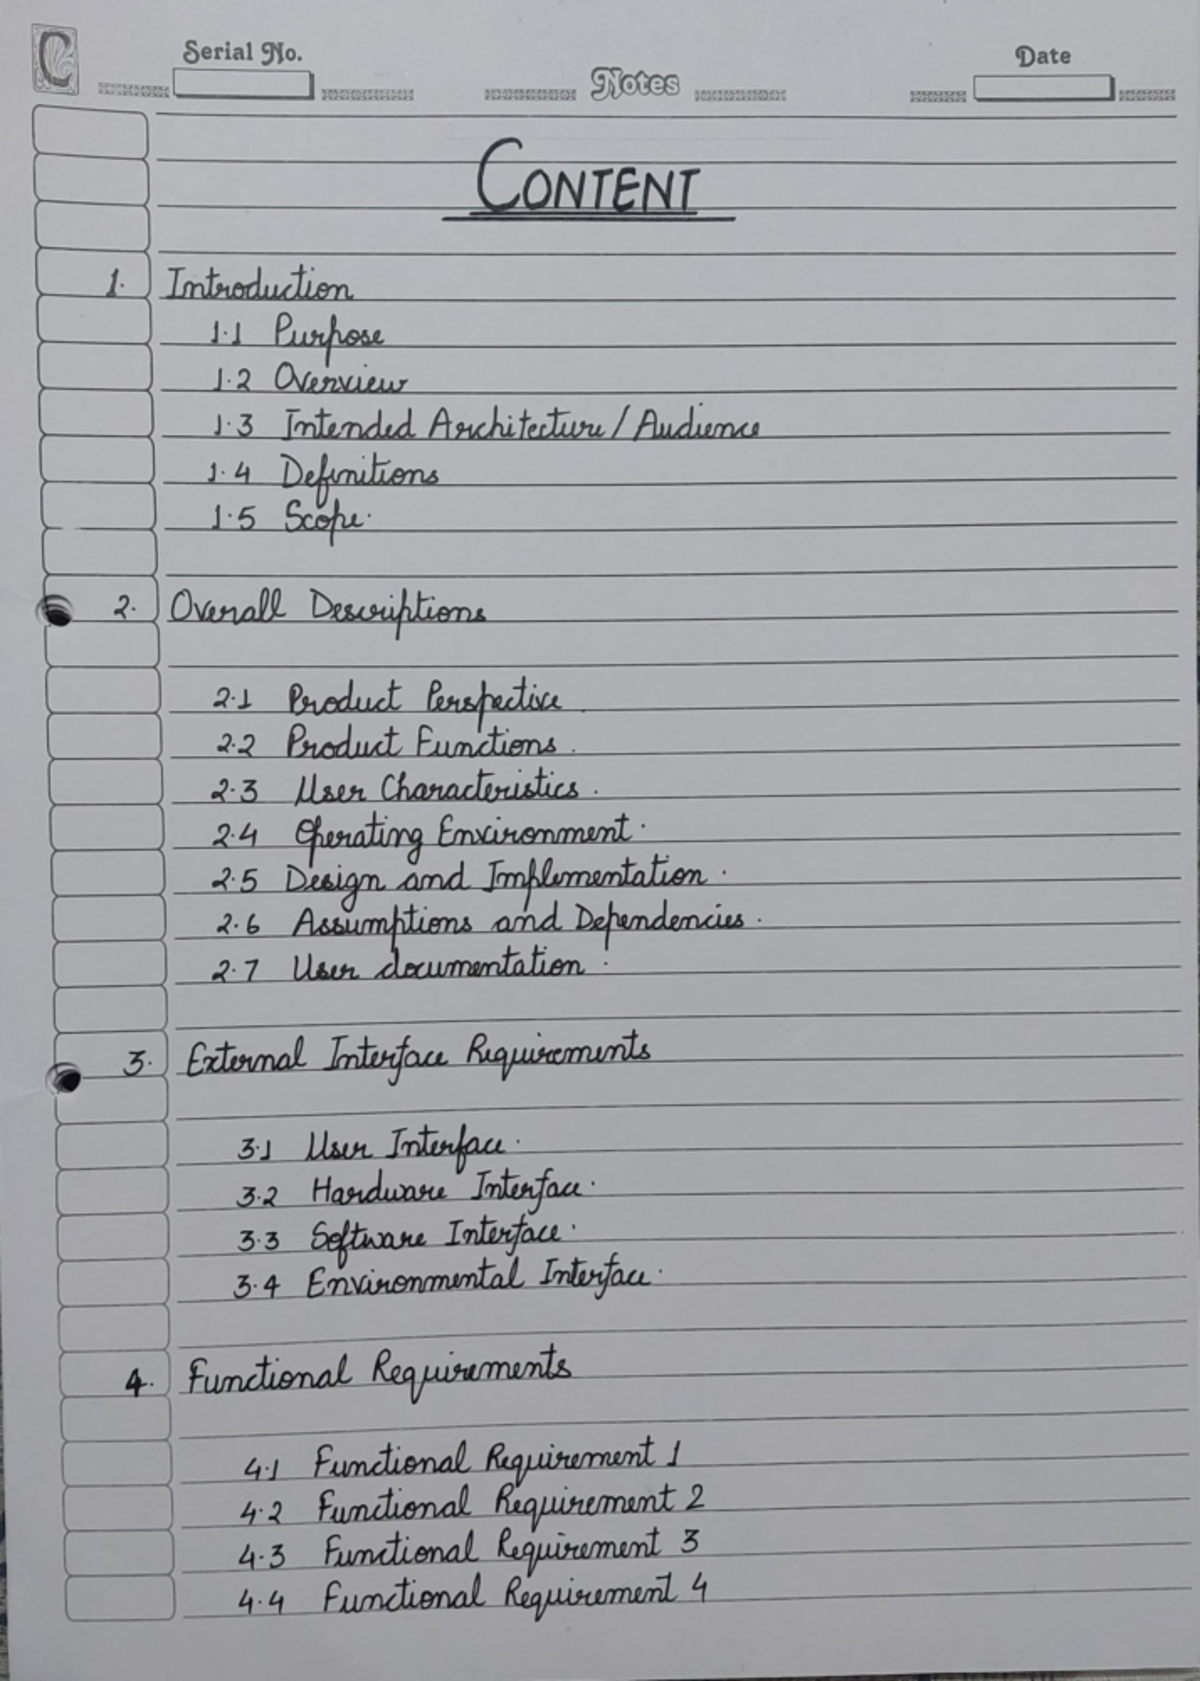 C
Serial No.
Notes
Date
CONTENT
1. Introduction
1.1 Purpose
1.2 Overview
1.3 Intended Architecture / Audience
1.4 Definitions
1.5 Scope.
2. Overall Descriptions
2.1 Product Perspective
2.2 Product Functions.
2.3 User Characteristics.
2.4 Operating Environment.
2.5 Design and Implementation.
2.6 Assumptions and Dependencies.
2.7 User documentation.
3. External Interface Requirements
3.1 User Interface.
3.2 Hardware Interface.
3.3 Software Interface.
3.4 Environmental Interface.
4. Functional Requirements
4.1 Functional Requirement 1
4.2 Functional Requirement 2
4.3 Functional Requirement 3
4.4 Functional Requirement 4